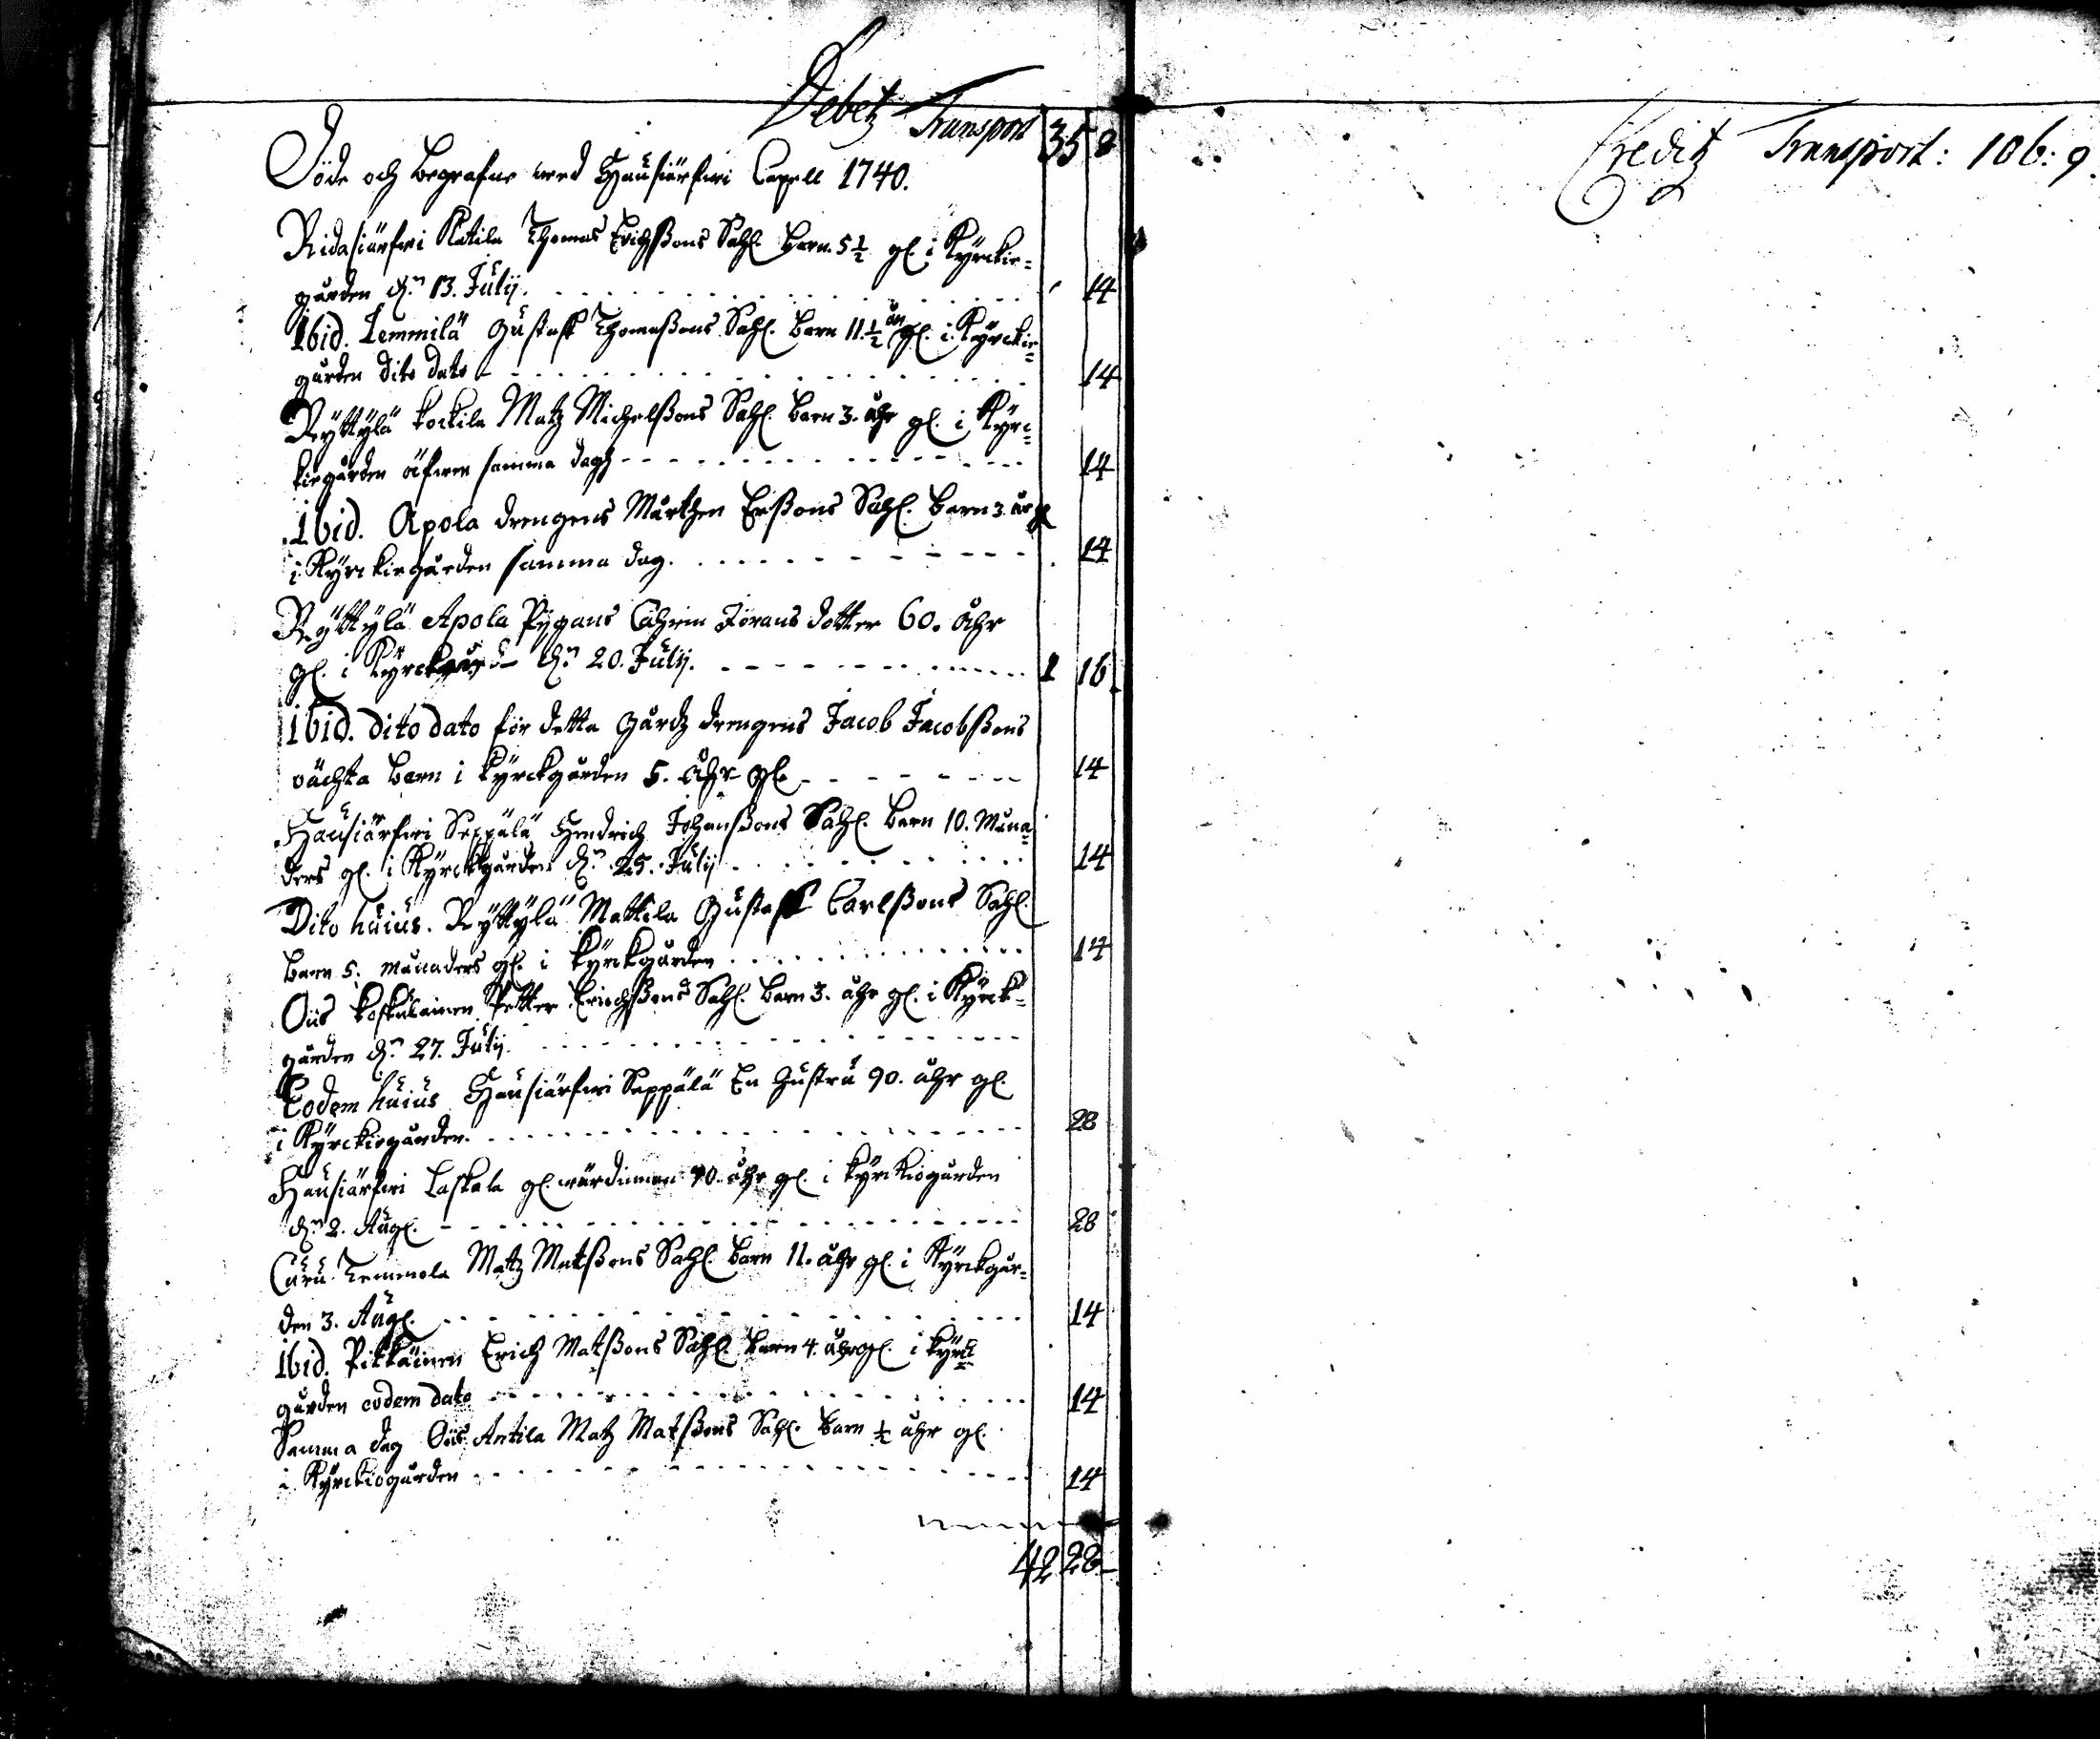 Debetz Transport 35 8
Döde och begrafne wed Hausiärfwi Capell 1740.
Ridasiärfwi Katila Thomas Erichßons Sahl. barn 5 1/2 gl. i Kyrckie=
gården d.n 13. Julij. 14
Ibid. Lemmilä Gustaff Thomaßons Sahl. barn 11. 1/2 år gl. i Kyrckie=
gården dito dato 14
Ryttylä Kockila Matz Michelßons Sahl. barn 3. åhr gl. i Kyrc=
kiegården äfwen samma dagh 14
Ibid. Apola drengens Mårthen Erßons Sahl. barn 3. år gl
i Kyrckiegården samma dag. 14
Ryttylä Apola Pigans Cahrin Jörans dotter 60. åhr
gl. i Kyrckegård d.n 20. Julij. 1 16
ibid. dito dato för detta gårdz drengens Jacob Jacobßons
oächta barn i kyrckgården 5. åhr gl. 14
Hausiärfwi Seppälä Hendrich Johanßons Sahl. barn 10. Måna=
ders gl. i Kyrckgården d.n 25. Julij 14
Dito huius. Ryttylä Mattila Gustaff Carlßons Sahl.
barn 5. månaders gl. i kyrckgården 14
Oiis Koskulainen Petter Erichßons Sahl. barn 3. åhr gl. i Kyrck=
gården d.n 27. Julij.
Eodem huius Hausiärfwi Seppälä En Hustru 90. åhr gl.
i Kyrckiegården. 28
Hausiärfwi Laskala gl. wärdinnan 70. åhr gl. i kyrckiogården
d.n 2. Aug. 28
Curu Temmola Matz Matßons Sahl. barn 11. åhr gl. i Kyrckgår=
den 3. Aug. 14
Ibid. Pikkäinen Erich Matßons Sahl. barn 4. åhr gl. i kyrck=
gården eodem dato 14
Samma dag Oiis Antila Matz Matßons Sahl. barn 1/2 åhr gl.
i Kyrckiogården 14
42 28
Creditz Transport: 106: 9.